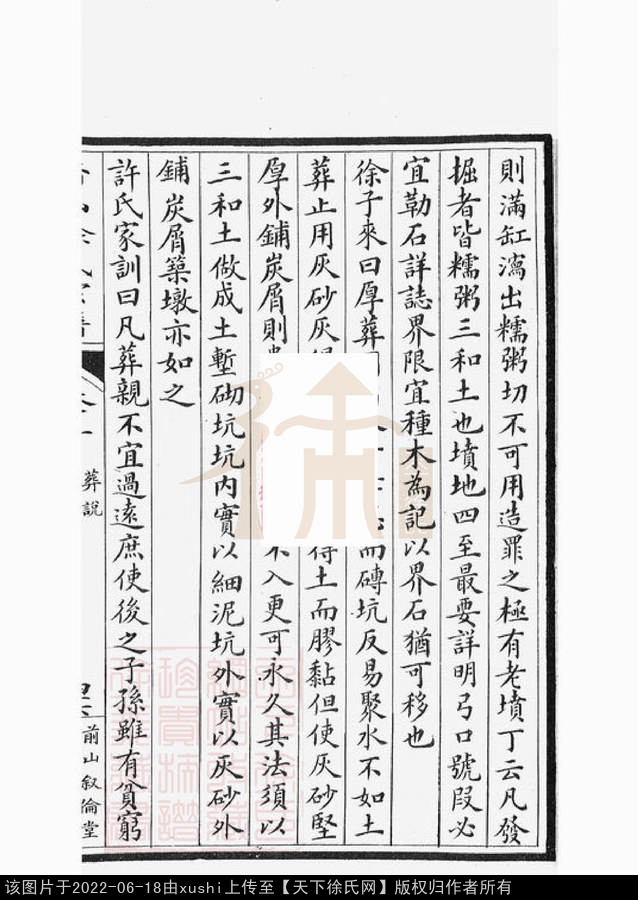 則滿缸瀉出糯粥切不可用造罪之極有老墳丁云凡發
掘者皆糯粥三和土也墳地四至最要詳明弓口號叚必
宜勒石詳誌界限宜種木為記以界石猶可移也
徐子來曰厚葬而磚坑反易聚水不如土
葬止用灰砂灰得土而膠黏但使灰砂堅
厚外鋪炭屑則不入更可永久其法須以
三和土做成土塹砌坑坑內實以細泥坑外實以灰砂外
鋪炭屑築墩亦如之
許氏家訓曰凡葬親不宜過遠庶使後之子孫雖有貧窮
葬說
前山叙倫堂
该图片于2022-06-18由xushi上传至【天下徐氏网】版权归作者所有